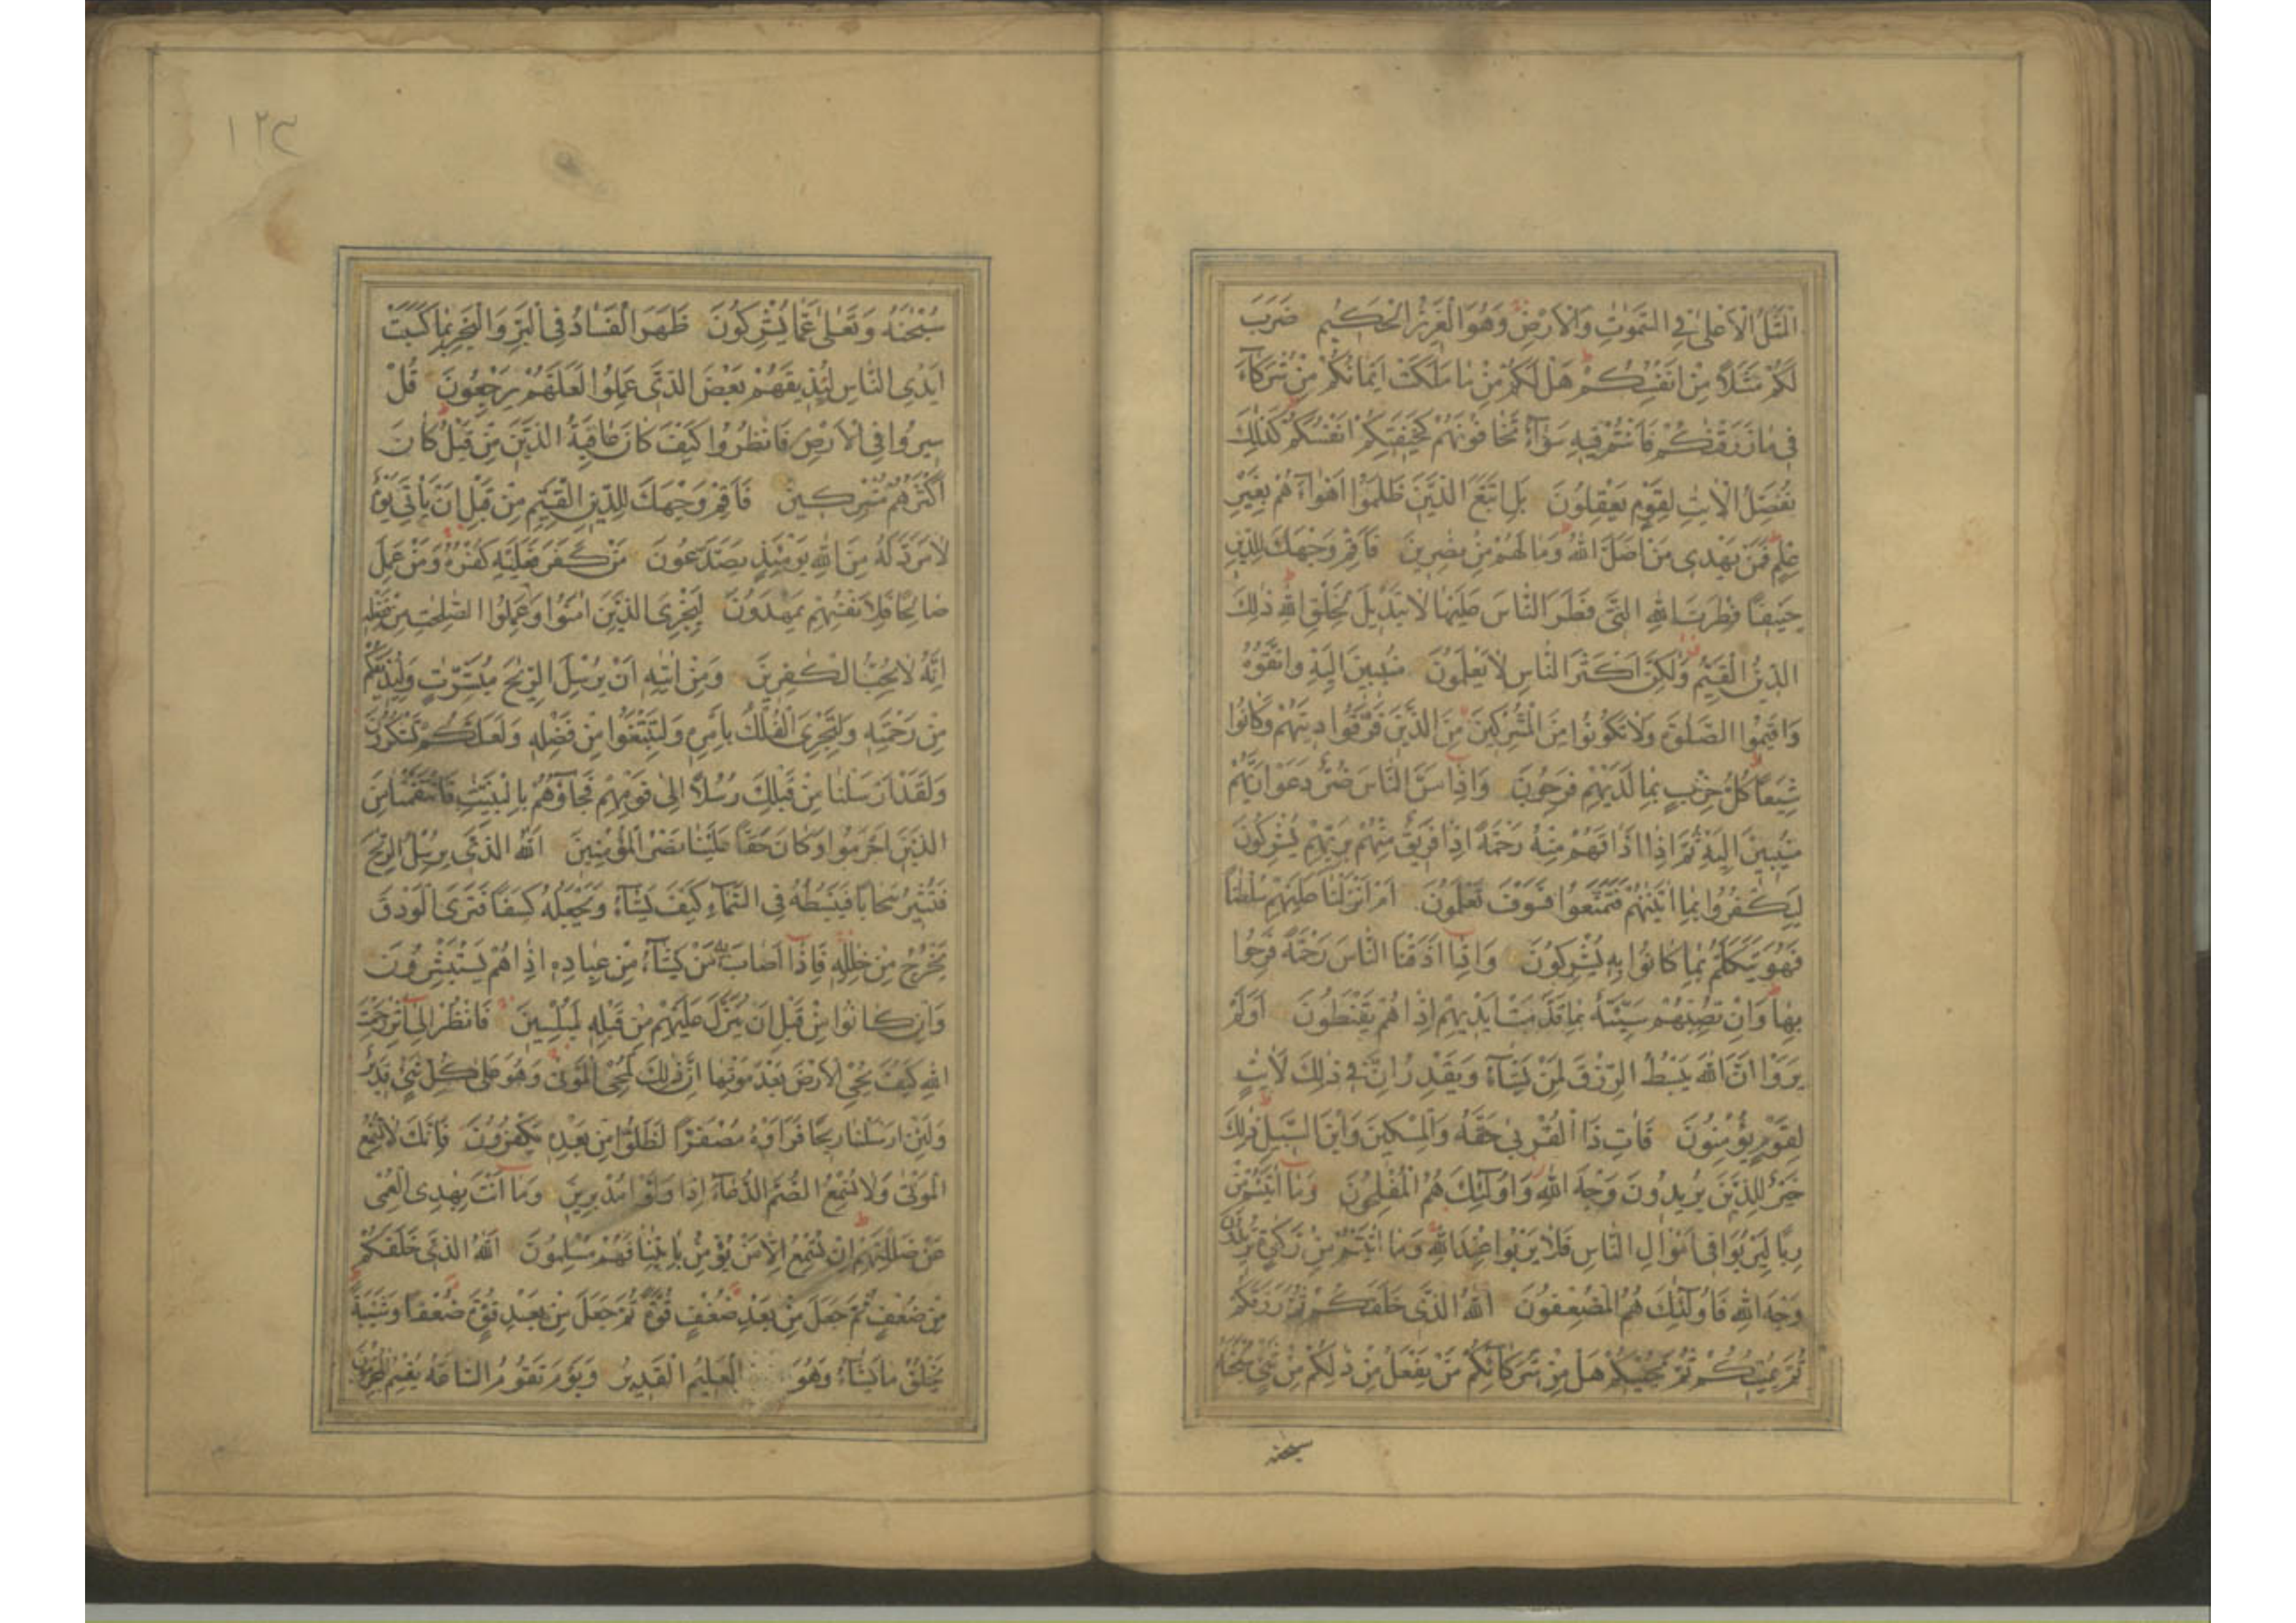 الْمَثَلُ الْاَعْلٰى فِى السَّمٰوٰتِ وَالْاَرْضِ وَهُوَ الْعَزِيزُ الْحَكِيمُ ضَرَبَ
لَكُمْ مَثَلًا مِنْ اَنْفُسِكُمْ هَلْ لَكُمْ مِنْ مَا مَلَكَتْ اَيْمَانُكُمْ مِنْ شُرَكَآءَ
فِى مَا رَزَقْنٰكُمْ فَاَنْتُمْ فِيهِ سَوَآءٌ تَخَافُونَهُمْ كَخِيفَتِكُمْ اَنْفُسَكُمْ كَذٰلِكَ
نُفَصِّلُ الْاٰيٰتِ لِقَوْمٍ يَعْقِلُونَ بَلِ اتَّبَعَ الَّذِينَ ظَلَمُوا اَهْوَآءَهُمْ بِغَيْرِ
عِلْمٍ فَمَنْ يَهْدِى مَنْ اَضَلَّ اللّٰهُ وَمَا لَهُمْ مِنْ نٰصِرِينَ فَاَقِمْ وَجْهَكَ لِلدِّينِ
حَنِيفًا فِطْرَتَ اللّٰهِ الَّتِى فَطَرَ النَّاسَ عَلَيْهَا لَا تَبْدِيلَ لِخَلْقِ اللّٰهِ ذٰلِكَ
الدِّينُ الْقَيِّمُ وَلٰكِنَّ اَكْثَرَ النَّاسِ لَا يَعْلَمُونَ مُنِيبِينَ اِلَيْهِ وَاتَّقُوهُ
وَاَقِيمُوا الصَّلٰوةَ وَلَا تَكُونُوا مِنَ الْمُشْرِكِينَ مِنَ الَّذِينَ فَرَّقُوا دِينَهُمْ وَكَانُوا
شِيَعًا كُلُّ حِزْبٍ بِمَا لَدَيْهِمْ فَرِحُونَ وَاِذَا مَسَّ النَّاسَ ضُرٌّ دَعَوْا رَبَّهُمْ
مُنِيبِينَ اِلَيْهِ ثُمَّ اِذَا اَذَاقَهُمْ مِنْهُ رَحْمَةً اِذَا فَرِيقٌ مِنْهُمْ بِرَبِّهِمْ يُشْرِكُونَ
لِيَكْفُرُوا بِمَا اٰتَيْنٰهُمْ فَتَمَتَّعُوا فَسَوْفَ تَعْلَمُونَ اَمْ اَنْزَلْنَا عَلَيْهِمْ سُلْطٰنًا
فَهُوَ يَتَكَلَّمُ بِمَا كَانُوا بِهِ يُشْرِكُونَ وَاِذَا اَذَقْنَا النَّاسَ رَحْمَةً فَرِحُوا
بِهَا وَاِنْ تُصِبْهُمْ سَيِّئَةٌ بِمَا قَدَّمَتْ اَيْدِيهِمْ اِذَا هُمْ يَقْنَطُونَ اَوَلَمْ
يَرَوْا اَنَّ اللّٰهَ يَبْسُطُ الرِّزْقَ لِمَنْ يَشَآءُ وَيَقْدِرُ اِنَّ فِى ذٰلِكَ لَاٰيٰتٍ
لِقَوْمٍ يُؤْمِنُونَ فَاٰتِ ذَا الْقُرْبٰى حَقَّهُ وَالْمِسْكِينَ وَابْنَ السَّبِيلِ ذٰلِكَ
خَيْرٌ لِلَّذِينَ يُرِيدُونَ وَجْهَ اللّٰهِ وَاُولٰٓئِكَ هُمُ الْمُفْلِحُونَ وَمَا اٰتَيْتُمْ مِنْ
رِبًا لِيَرْبُوَا فِى اَمْوَالِ النَّاسِ فَلَا يَرْبُوا عِنْدَ اللّٰهِ وَمَا اٰتَيْتُمْ مِنْ زَكٰوةٍ تُرِيدُونَ
وَجْهَ اللّٰهِ فَاُولٰٓئِكَ هُمُ الْمُضْعِفُونَ اَللّٰهُ الَّذِى خَلَقَكُمْ ثُمَّ رَزَقَكُمْ
ثُمَّ يُمِيتُكُمْ ثُمَّ يُحْيِيكُمْ هَلْ مِنْ شُرَكَآئِكُمْ مَنْ يَفْعَلُ مِنْ ذٰلِكُمْ مِنْ شَىْءٍ
سبحنه
١٢٣
سُبْحٰنَهُ وَتَعٰلٰى عَمَّا يُشْرِكُونَ ظَهَرَ الْفَسَادُ فِى الْبَرِّ وَالْبَحْرِ بِمَا كَسَبَتْ
اَيْدِى النَّاسِ لِيُذِيقَهُمْ بَعْضَ الَّذِى عَمِلُوا لَعَلَّهُمْ يَرْجِعُونَ قُلْ
سِيرُوا فِى الْاَرْضِ فَانْظُرُوا كَيْفَ كَانَ عَاقِبَةُ الَّذِينَ مِنْ قَبْلُ كَانَ
اَكْثَرُهُمْ مُشْرِكِينَ فَاَقِمْ وَجْهَكَ لِلدِّينِ الْقَيِّمِ مِنْ قَبْلِ اَنْ يَاْتِىَ يَوْمٌ
لَا مَرَدَّ لَهُ مِنَ اللّٰهِ يَوْمَئِذٍ يَصَّدَّعُونَ مَنْ كَفَرَ فَعَلَيْهِ كُفْرُهُ وَمَنْ عَمِلَ
صَالِحًا فَلِاَنْفُسِهِمْ يَمْهَدُونَ لِيَجْزِىَ الَّذِينَ اٰمَنُوا وَعَمِلُوا الصّٰلِحٰتِ مِنْ فَضْلِهِ
اِنَّهُ لَا يُحِبُّ الْكٰفِرِينَ وَمِنْ اٰيٰتِهِ اَنْ يُرْسِلَ الرِّيٰحَ مُبَشِّرٰتٍ وَلِيُذِيقَكُمْ
مِنْ رَحْمَتِهِ وَلِتَجْرِىَ الْفُلْكُ بِاَمْرِهِ وَلِتَبْتَغُوا مِنْ فَضْلِهِ وَلَعَلَّكُمْ تَشْكُرُونَ
وَلَقَدْ اَرْسَلْنَا مِنْ قَبْلِكَ رُسُلًا اِلٰى قَوْمِهِمْ فَجَآؤُهُمْ بِالْبَيِّنٰتِ فَانْتَقَمْنَا مِنَ
الَّذِينَ اَجْرَمُوا وَكَانَ حَقًّا عَلَيْنَا نَصْرُ الْمُؤْمِنِينَ اَللّٰهُ الَّذِى يُرْسِلُ الرِّيٰحَ
فَتُثِيرُ سَحَابًا فَيَبْسُطُهُ فِى السَّمَآءِ كَيْفَ يَشَآءُ وَيَجْعَلُهُ كِسَفًا فَتَرَى الْوَدْقَ
يَخْرُجُ مِنْ خِلٰلِهِ فَاِذَا اَصَابَ بِهِ مَنْ يَشَآءُ مِنْ عِبَادِهِ اِذَا هُمْ يَسْتَبْشِرُونَ
وَاِنْ كَانُوا مِنْ قَبْلِ اَنْ يُنَزَّلَ عَلَيْهِمْ مِنْ قَبْلِهِ لَمُبْلِسِينَ فَانْظُرْ اِلٰى اٰثَرِ رَحْمَتِ
اللّٰهِ كَيْفَ يُحْىِ الْاَرْضَ بَعْدَ مَوْتِهَا اِنَّ ذٰلِكَ لَمُحْىِ الْمَوْتٰى وَهُوَ عَلٰى كُلِّ شَىْءٍ قَدِيرٌ
وَلَئِنْ اَرْسَلْنَا رِيحًا فَرَاَوْهُ مُصْفَرًّا لَظَلُّوا مِنْ بَعْدِهِ يَكْفُرُونَ فَاِنَّكَ لَا تُسْمِعُ
الْمَوْتٰى وَلَا تُسْمِعُ الصُّمَّ الدُّعَآءَ اِذَا وَلَّوْا مُدْبِرِينَ وَمَا اَنْتَ بِهٰدِى الْعُمْىِ
عَنْ ضَلٰلَتِهِمْ اِنْ تُسْمِعُ اِلَّا مَنْ يُؤْمِنُ بِاٰيٰتِنَا فَهُمْ مُسْلِمُونَ اَللّٰهُ الَّذِى خَلَقَكُمْ
مِنْ ضُعْفٍ ثُمَّ جَعَلَ مِنْ بَعْدِ ضُعْفٍ قُوَّةً ثُمَّ جَعَلَ مِنْ بَعْدِ قُوَّةٍ ضُعْفًا وَشَيْبَةً
يَخْلُقُ مَا يَشَآءُ وَهُوَ الْعَلِيمُ الْقَدِيرُ وَيَوْمَ تَقُومُ السَّاعَةُ يُقْسِمُ الْمُجْرِمُونَ